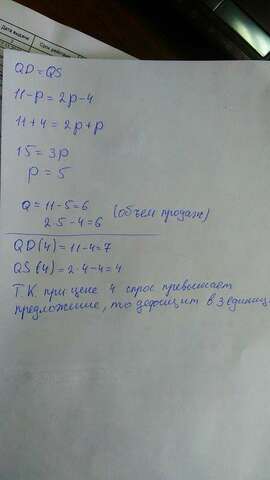 Дата выдачи
QD=QS
11-p=2p-4
11+4=2p+p
15=3p
p=5
Q=11-5=6
2·5-4=6 (объем продаж)
QD(4)=11-4=7
QS(4)=2·4-4=4
Т.К. при цене 4 спрос превышает
предложение, то дефицит в 3 единиц